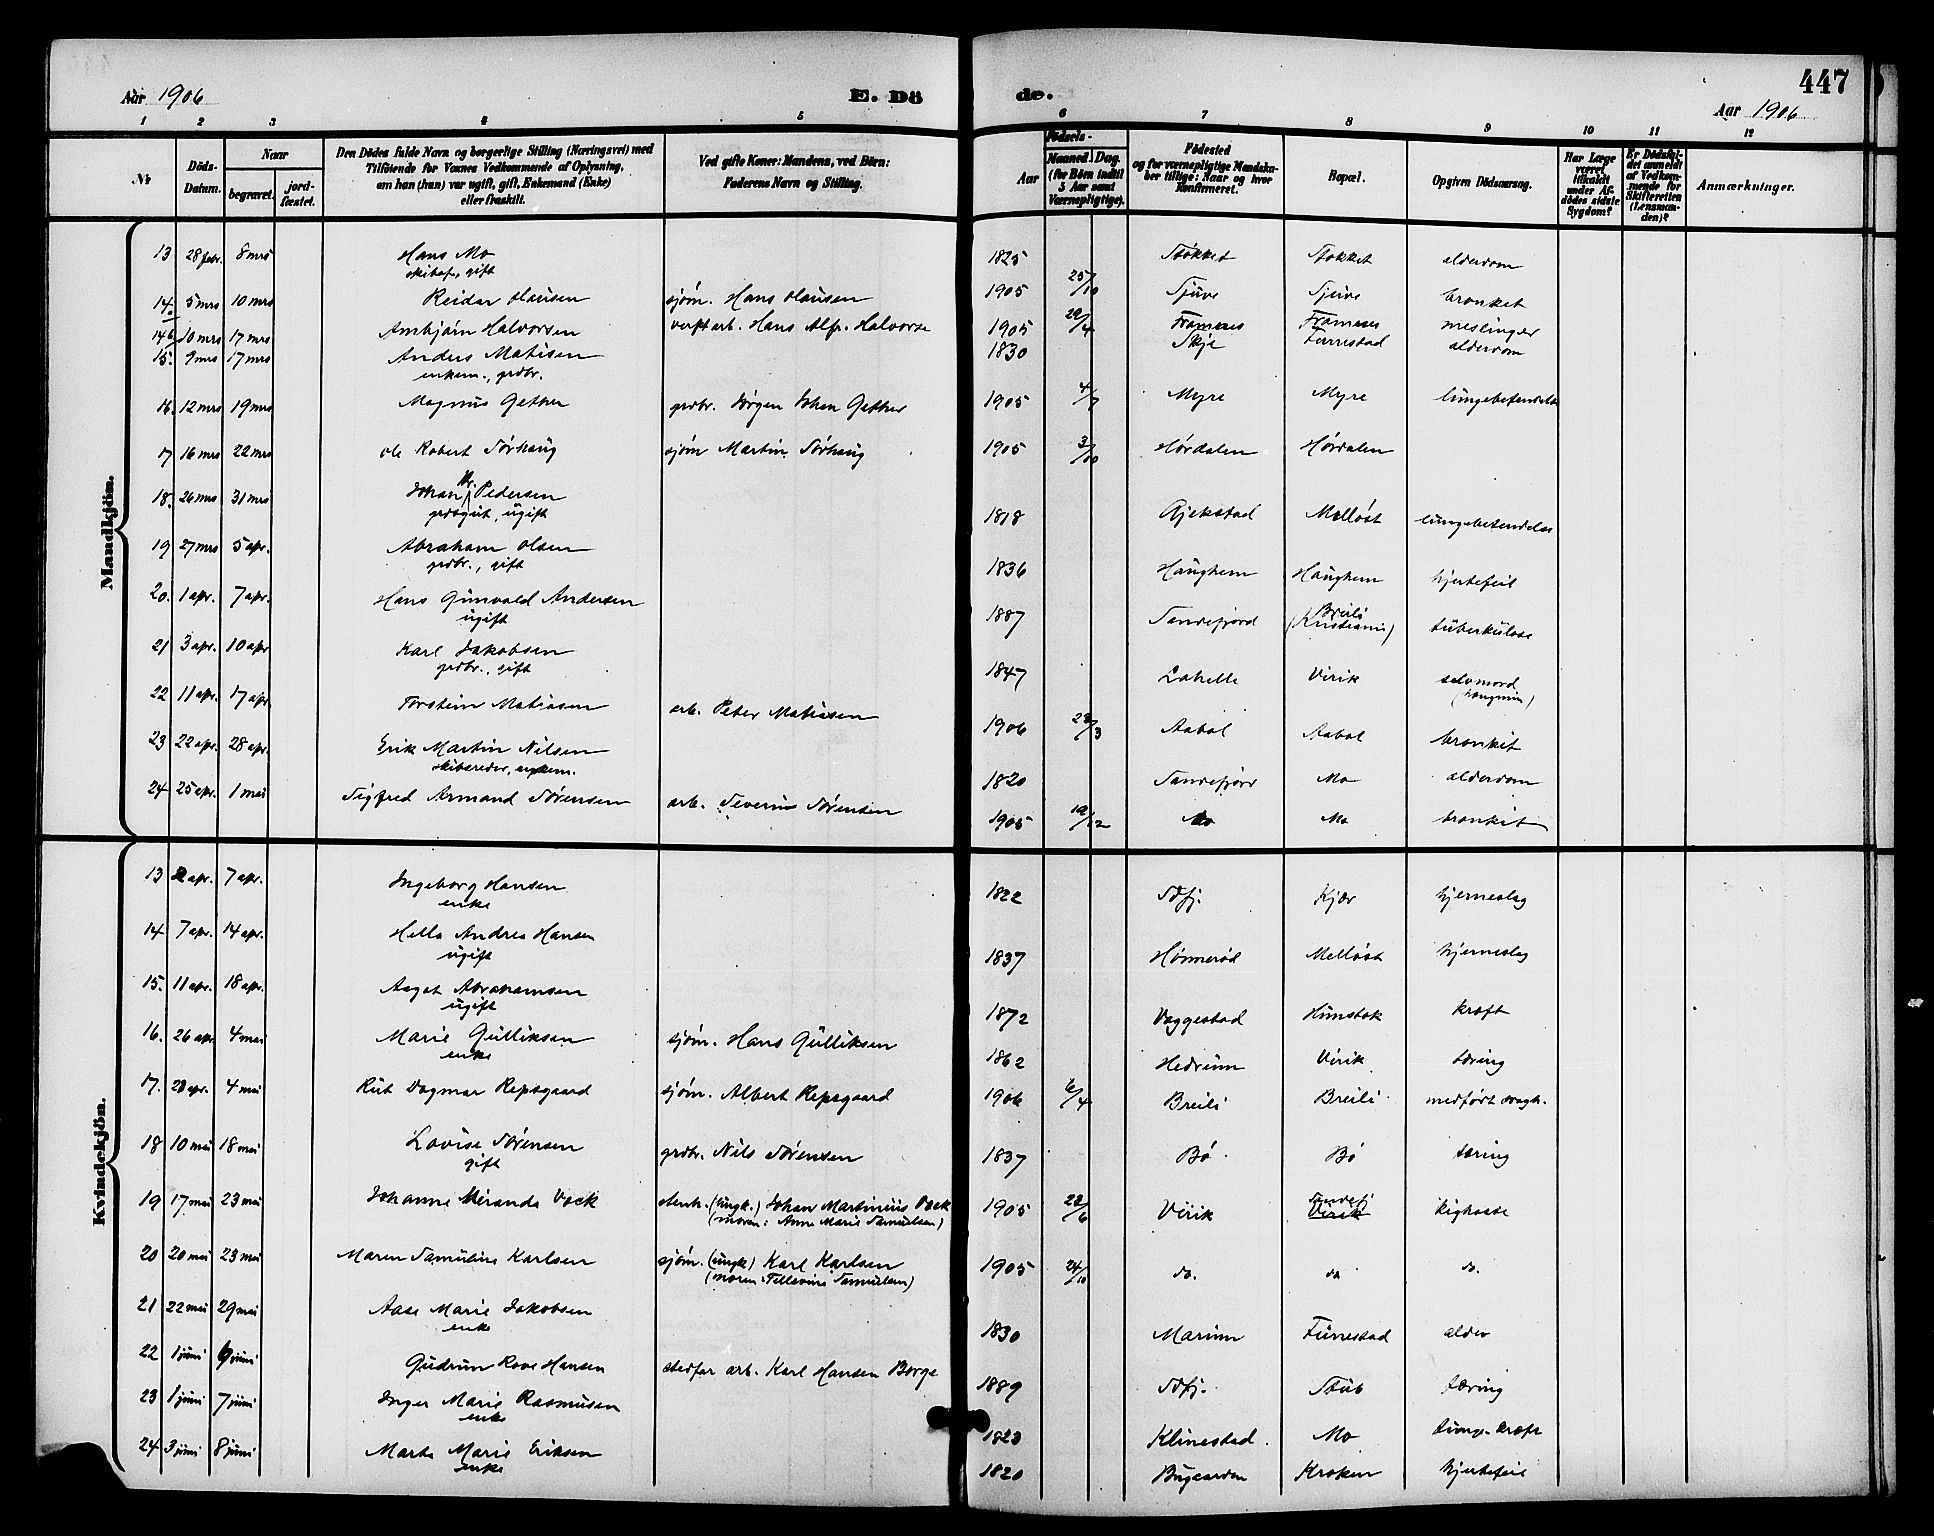 Aar 1906 E. Dö de. 447
Aar 1906
1 2 3 4 5 6 7 8 9 10 11 12
Nr
Döds-Datum.
Naar
begravet.
jord-fæstet.
Den Dödes fulde Navn og borgerlige Stilling (Næringsvei) med
Tilföiende for Voxnes Vedkommende af Oplysning,
om han (hun) var ugift, gift, Enkemand (Enke)
eller fraskilt.
Ved gifte Koner: Mandens, ved Börn:
Faderens Navn og Stilling.
Födsels-
Aar
Maaned. Dag.
(for Börn indtil
5 Aar samt
Værnepligtige).
Födested
og for værnepligtige Mandska-
ber tillige: Naar og hvor
Konfirmeret.
Bopæl.
Opgiven Dödsaarsag.
Har Læge
været
tilkaldt
under Af-
dödes sidste
Sygdom?
Er Dödsfal-
det anmeldt
af Vedkom-
mende for
Skifteretten
(Lensman-
den)?
Anmærkninger.
Mandkjön.
13 28 febr. 8 mrs Hans Mo 1825 Støkket Stokket alderdom
gift
14a 5 mrs 10 mrs Reidar Olausen sjøm. Hans Olausen 1905 25/10 Tjuve Tjuve bronket
14b 10 mrs 17 mrs Arnbjørn Halvorsen verftarb. Hans Alfr. Halvorse 1905 22/4 Framnes Framnes meslinger
15. 9 mrs 17 mrs Anders Matisen 1830 Skje Furrestad alderdom
enkem., grdbr.
16. 12 mrs 19 mrs Magnus Gether grdbr. Jørgen Johan Gether 1905 4/7 Myre Myre lungebetendelse
17 16 mrs 22 mrs Ole Robert Sørhaug sjøm Martin Sørhaug 1905 3/10 Hørdalen Hørdalen
18. 26 mrs 31 mrs Johan Kr. Pedersen 1818 Gjekstad Melløst lungebetendelse
grdsgut, ugift
19 27 mrs 5 apr. Abraham Olsen 1836 Haughem Haughem hjertefeil
grdbr., gift
20. 1 apr. 7 apr. Hans Gunvald Andersen 1887 Sandefjord Breili (Kristiania) tuberkulose
ugift
21 3 apr. 10 apr Karl Jakobsen 1847 Lahelle Virik selvmord
grdbr., gift (hængning)
22 11 apr. 17 apr. Torstein Matiasen arb. Peter Matiasen 1906 28/3 Aabol Aabol bronkit
23 22 apr. 28 apr. Erik Martin Nilsen 1820 Sandefjord Mo alderdom
skibsreder, enkem.
24 25 apr. 1 mai Sigfred Armand Sørensen arb. Severin Sørensen 1905 19/12 Mo Mo bronkit
Kvindekjön.
13 2 apr. 7 apr. Ingeborg Hansen 1822 Sdfj. Kjær hjerneslag
enke
14 7 apr. 14 apr. Hella Andrea Hansen 1837 Hønnerød Melløst hjerneslag
ugift
15. 11 apr. 18 apr. Aagot Abrahamsen 1872 Vaggestad Hunstok kræft
ugift
16. 26 apr 4 mai Marie Gulliksen sjøm. Hans Gulliksen 1862 Hedrum Virik tæring
enke
17. 28 apr. 4 mai Rut Dagmar Repsgaard sjøm. Albert Repsgaard 1906 6/4 Breili Breili medført svagh.
18 10 mai 18 mai Lovise Sørensen grdbr. Nils Sørensen 1837 Bø Bø tæring
gift
19 17 mai 23 mai Johanne Miranda Vock stenh. (ungk.) Johan Martinius Vock 1905 22/6 Virik Sandefj Virik kighoste
(moren: Anne Marie Samuelsen)
20 20 mai 23 mai Maren Samuline Karlsen sjøm. (ungk) Karl Karlsen 1905 24/10 do. do do.
21 22 mai 29 mai Aase Marie Jakobsen 1830 Marum Furrestad alder
enke
22 1 juni 6 juni Gudrun Rove Hansen stedfar arb. Karl Hansen Borge 1889 Sdfj. Stub tæring
23 1 juni 7 juni Inger Marie Rasmusen 1823 Klinestad Mo kræft
enke
24 3 juni 8 juni Marte Marie Eriksen 1820 Bugaarden Kroken hjertefeil
enke